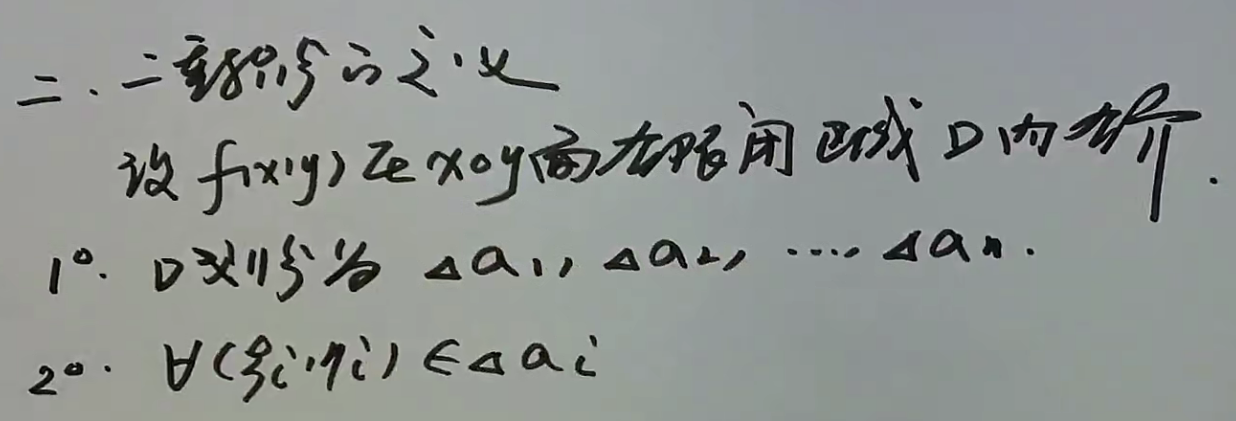 二.二重积分的定义
设f(x,y)在xoy面有限闭区域D内有界.
1°. D划分为 Δa₁, Δa₂, …, Δaₙ.
2°. ∀(ξi,ηi)∈Δai